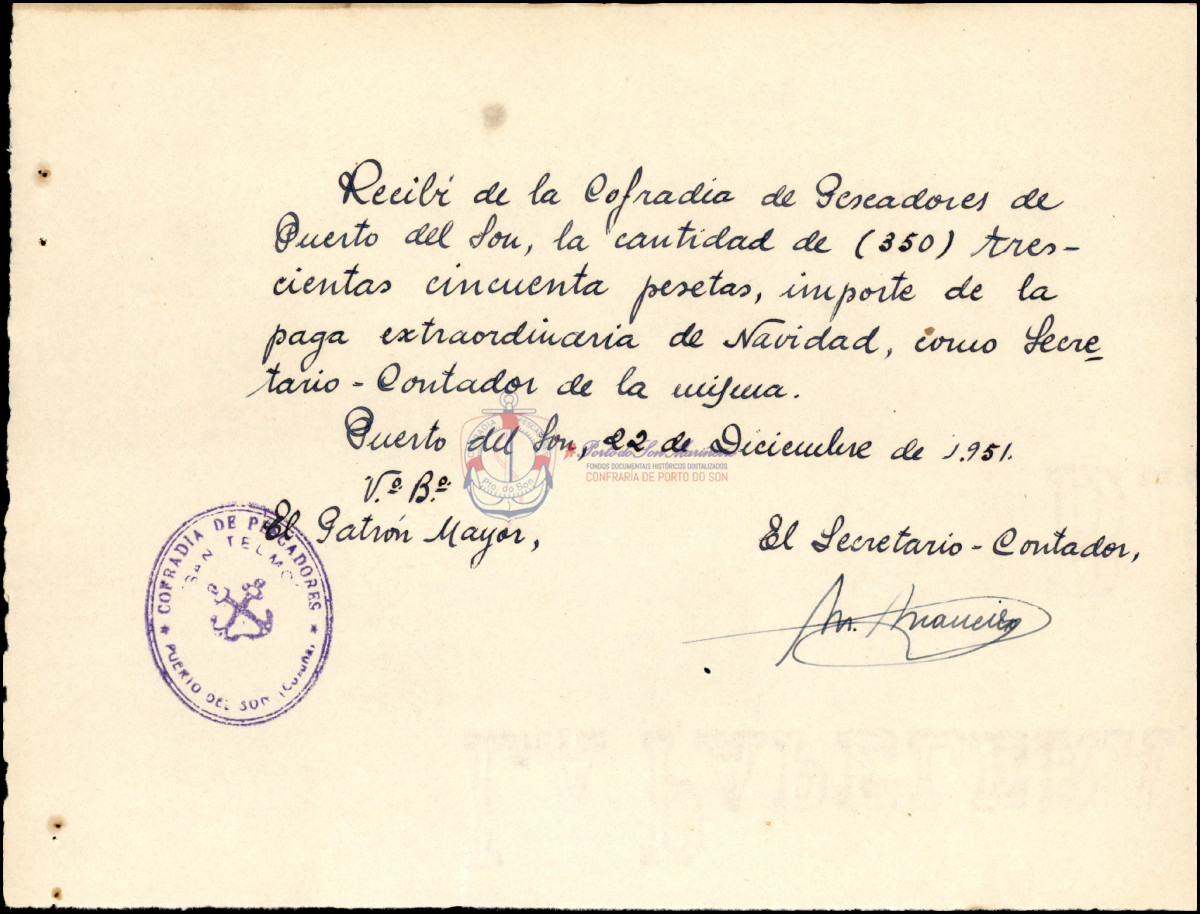 Recibí de la Cofradía de Pescadores de
Puerto del Son, la cantidad de (350) tres-
cientas cincuenta pesetas, importe de la
paga extraordinaria de Navidad, como Secre-
tario-Contador de la misma.
Puerto del Son, 22 de Diciembre de 1.951.
COFRADIA PESCADORES
Pto. do Son
Porto do Son Mariñeiro
FONDOS DOCUMENTAIS HISTÓRICOS DIXITALIZADOS
CONFRARÍA DE PORTO DO SON
V.º B.º
El Patrón Mayor,
El Secretario-Contador,
COFRADIA DE PESCADORES
SAN TELMO
PUERTO DEL SON (Coruña)
M.